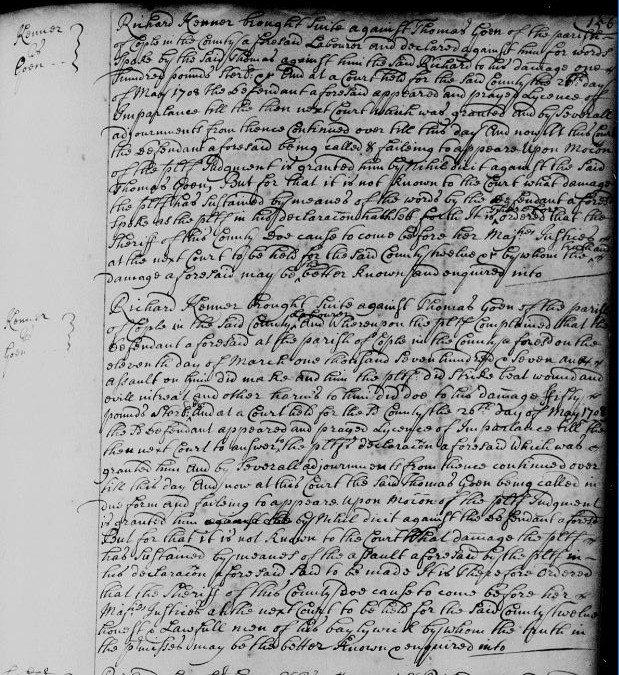 156
Kenner
vs
Goen
Richard Kenner brought Suite against Thomas Goen of the parish
of Cople in the County aforesaid Labourer and declared against him for words
Spoke by the said Thomas against him the said Richard to his damage one
hundred pounds Sterl &c And at a Court held for the said County the 26th day
of May 1708 the Defendant aforesaid appeared and prayed Lycence of
Imparlance till the then next Court which was granted And by Severall
adjournments from thence Continued over till this day And now at this Court
the Defendant aforesaid being called & faileing to appeare Upon Mocon
of the pltf Judgment is granted him by Nihil dicit against the said
Thomas Goen, But for that it is not Known to the Court what damage
the pltf has Sustained by meanes of the words by the Defendant afores
Spoke as the pltf in his declaracon hath Set forth It is ordered that the
Sheriff of this County doe cause to come before her Majties Justices
at the next Court to be held for the said County twelve &c by whom the
damage aforesaid may be better Known and enquired into
Kenner
vs
Goen
Richard Kenner brought Suite against Thomas Goen of the parish
of Cople in the said County Labourer And Whereupon the pltf Complained that the
Defendant aforesaid at the parish of Cople in the County aforesd on the
eleventh day of March one thousand Seven hundred & Seven an
assault on him did make and him the pltf did Strike beat wound and
evill intreat and other harms to him did doe to his damage fifty
pounds Sterl &c And at a Court held for the sd County the 26th day of May 1708
the sd Defendant appeared and prayed Lycence of Imparlance till the
then next Court to answer the pltfs declaracon aforesaid which was
granted him And by Severall adjournments from thence continued over
till this day And now at this Court the said Thomas Goen being called in
due form and faileing to appeare Upon Mocon of the pltf Judgment
is granted him by Nihil dicit against the Defendant aforesd
But for that it is not Known to the Court What damage the pltf
has Sustained by meanes of the assault aforesaid by the pltf in
his declaracon aforesaid Said to be made It is Therefore Ordered
that the Sheriff of this County doe cause to come before her
Majties Justices at the next Court to be held for the said County twelve
honest & Lawfull men of his baylywick by whom the truth in
the premisses may be the better Known & enquired into